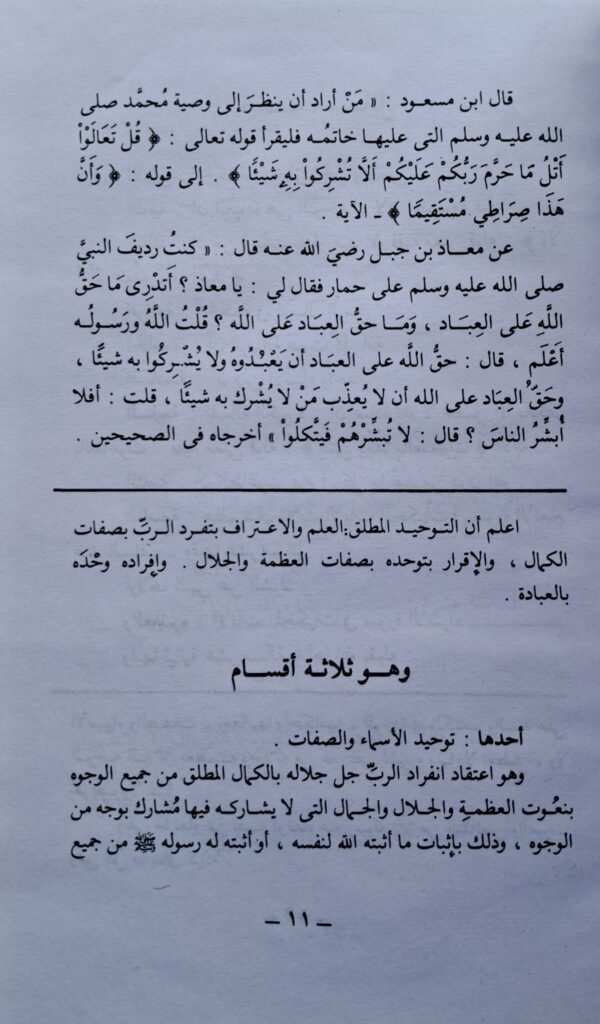 قال ابن مسعـود : « مَنْ أراد أن ينظرَ إلى وصية مُحمَّد صلى
الله عليـه وسلـم التى عليهـا خاتمُـه فليقرأ قوله تعالى : ﴿ قُلْ تَعَالَوْاْ
أَتْلُ مَا حَرَّمَ رَبُّكُمْ عَلَيْكُمْ أَلَّا تُشْرِكُواْ بِهِ شَيْئًا ﴾ . إلى قوله : ﴿ وَأَنَّ
هَذَا صِرَاطِي مُسْتَقِيمًا ﴾ ـ الآية .
عن معـاذ بن جبـل رضيَ الله عنـه قال : « كنتُ رديفَ النبيِّ
صلى الله عليه وسلم على حمار فقال لي : يا معاذ ؟ أَتَدْرِى مَا حَقُّ
اللَّهِ عَلى العِبَـاد ، وَمَـا حقُّ العِبَـاد عَلى اللَّه ؟ قُلْتُ اللَّهُ ورَسُولُـه
أعْلَم ، قال : حقُّ اللَّه على العبَـاد أن يَعْبُـدُوهُ ولا يُشْـرِكُوا به شيئًا ،
وحَقّ العِبَاد على الله أن لا يُعذِّب مَنْ لا يُشْرك به شيئًا ، قلت : أفلا
أُبشِّرُ الناسَ ؟ قال : لا تُبشِّرْهُمْ فَيَتَّكلُواْ » أخرجاه فى الصحيحين .
اعلم أن التـوحيـد المطلق:العلم والاعتـراف بتفـرد الـربِّ بصفات
الكمال ، والإقرار بتوحده بصفات العظمة والجلال . وإفراده وحْدَه
بالعبادة .
وهـو ثلاثـة أقسـام
أحدها : توحيد الأسماء والصفات .
وهو اعتقاد انفراد الربِّ جل جلاله بالكمال المطلق من جميع الوجوه
بنعُوت العظمـةِ والجـلال والجـمال التى لا يشاركـه فيها مُشارك بوجه من
الوجوه ، وذلك بإثبات ما أثبته الله لنفسه ، أو أثبته له رسوله ﷺ من جميع
ــ ١١ ــ